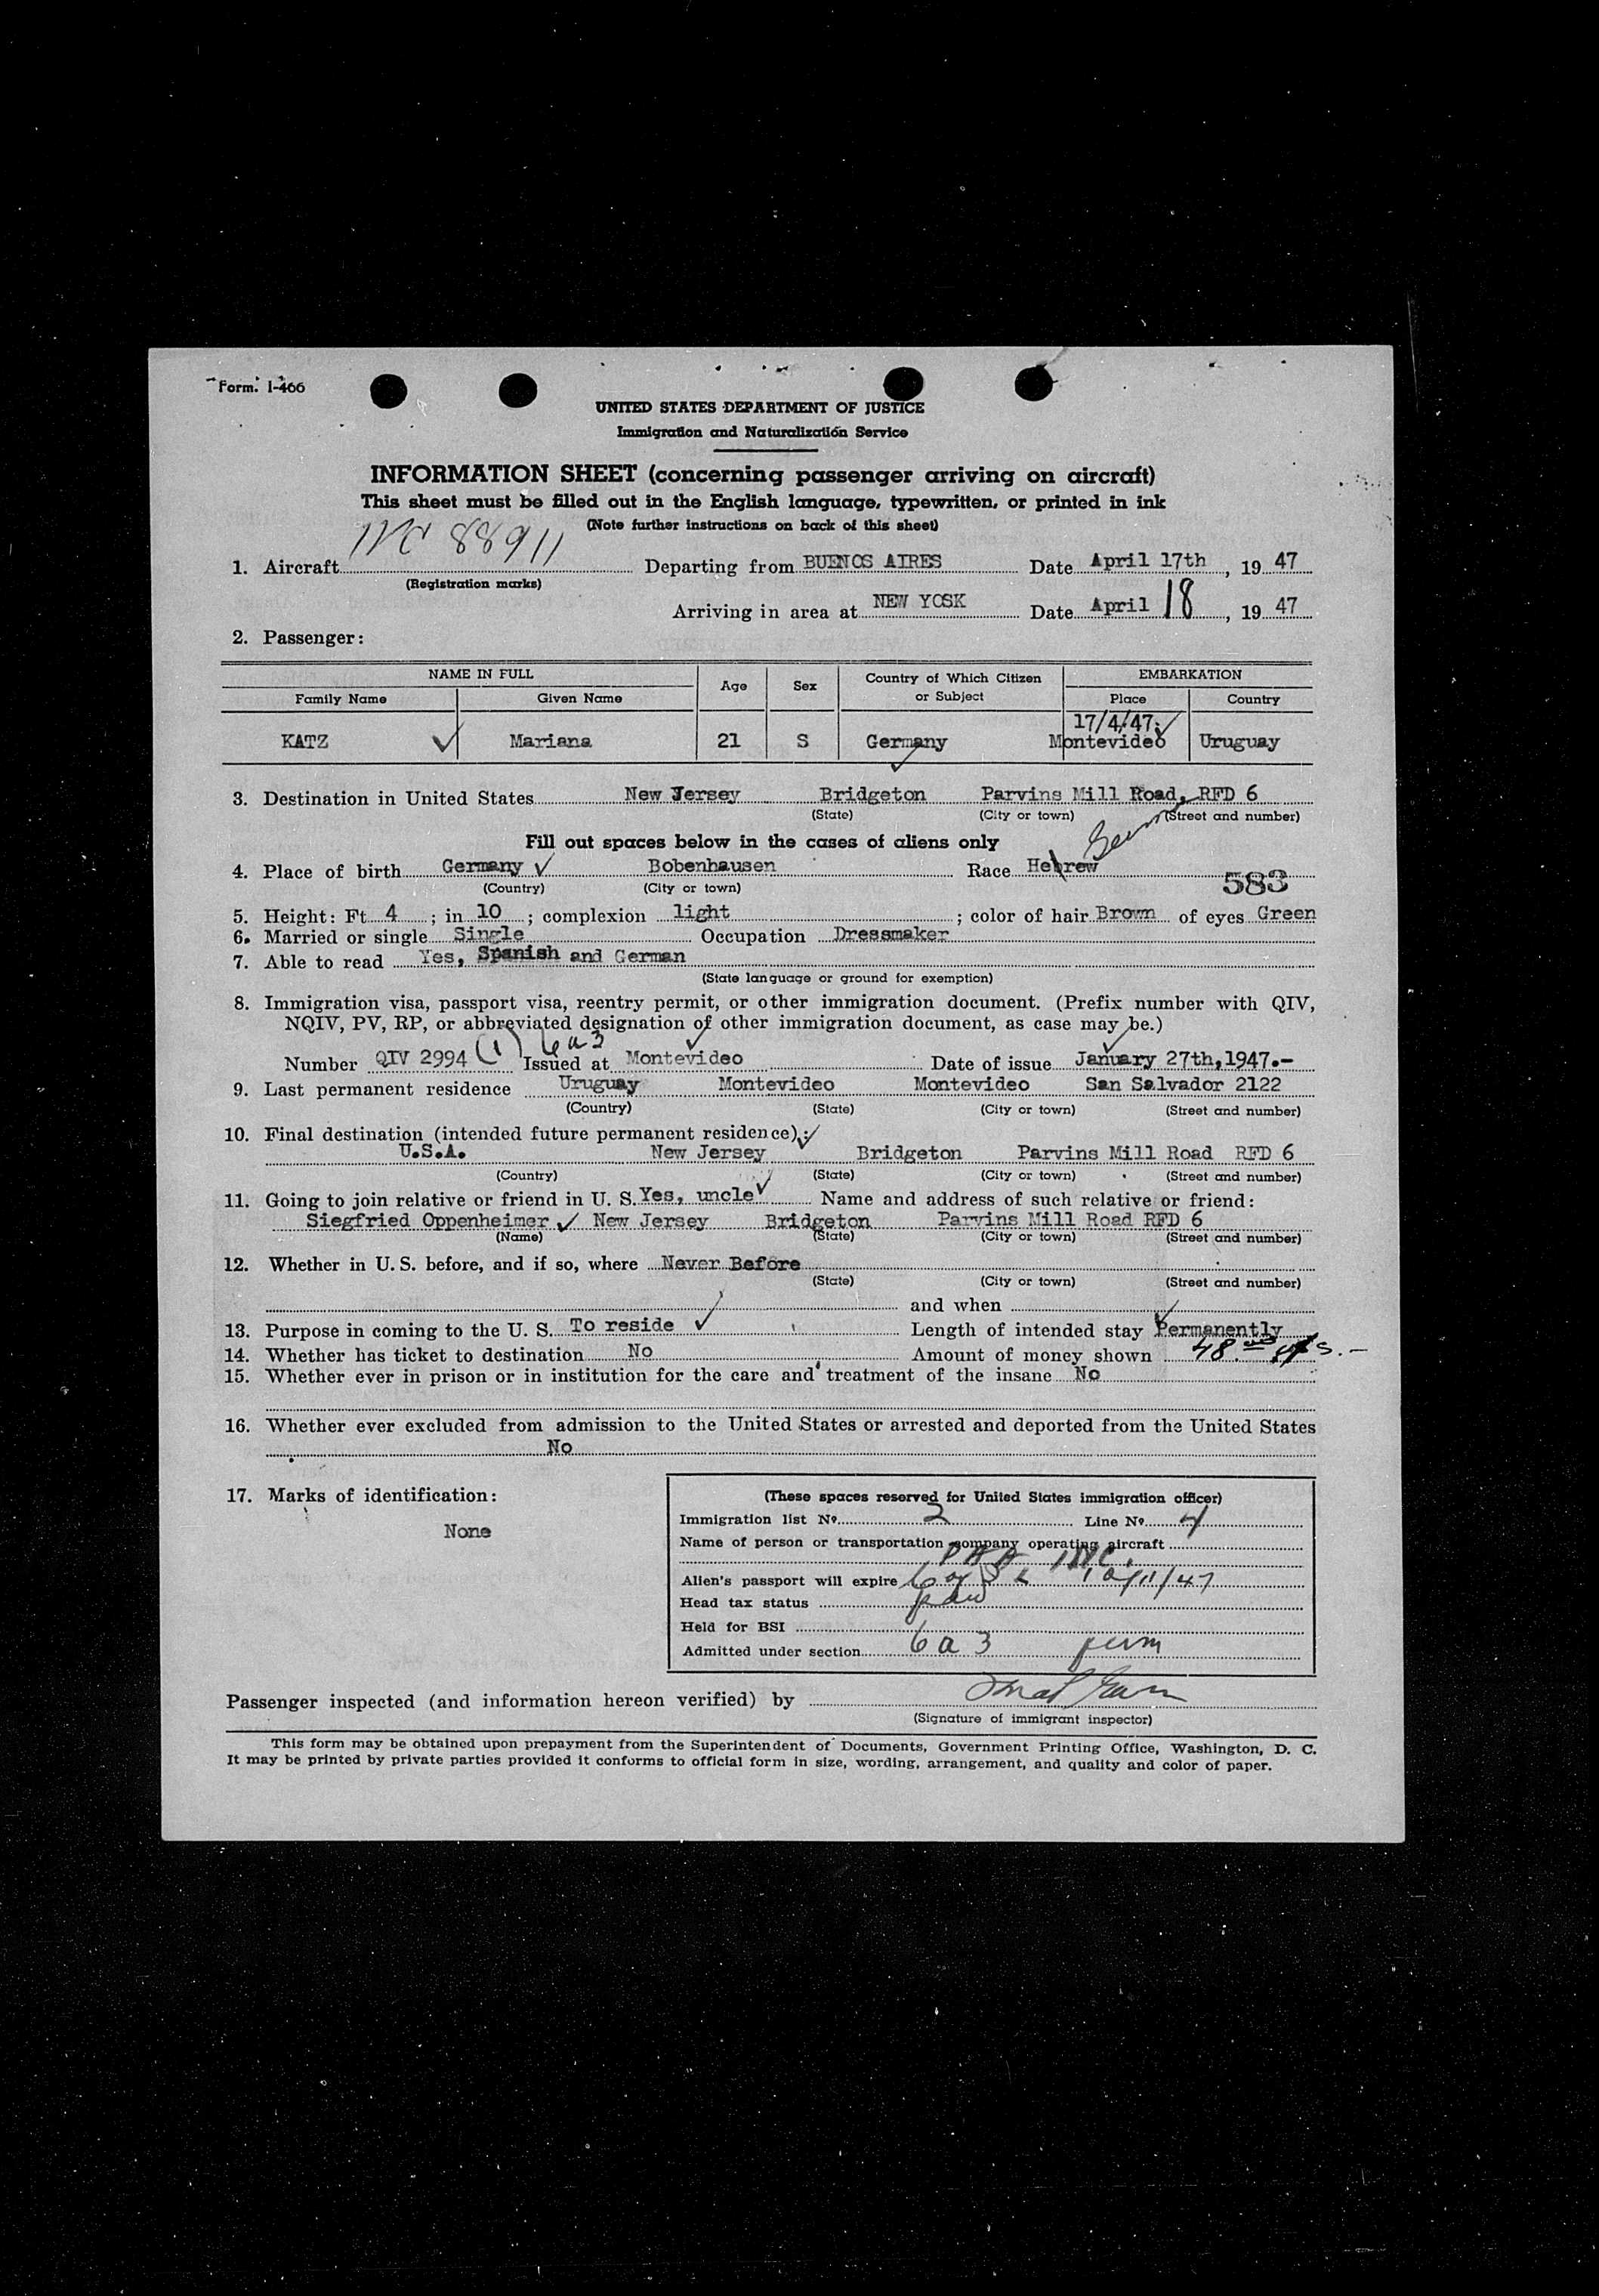 Form. I-466
UNITED STATES DEPARTMENT OF JUSTICE
Immigration and Naturalization Service
INFORMATION SHEET (concerning passenger arriving on aircraft)
This sheet must be filled out in the English language, typewritten, or printed in ink
(Note further instructions on back of this sheet)
1. Aircraft Departing from BUENOS AIRES Date April 17th, 19 47
(Registration marks)
Arriving in area at NEW YOSK Date April 18, 19 47
2. Passenger:
NAME IN FULL Age Sex Country of Which Citizen or Subject EMBARKATION
Family Name Given Name Place Country
17/4/47.
KATZ Mariana 21 S Germany Montevideo Uruguay
3. Destination in United States New Jersey Bridgeton Parvins Mill Road, RFD 6
(State) (City or town) (Street and number)
Fill out spaces below in the cases of aliens only
4. Place of birth Germany Bobenhausen Race Hebrew
(Country) (City or town) 583
5. Height: Ft 4 ; in 10 ; complexion light ; color of hair Brown of eyes Green
6. Married or single Single Occupation Dressmaker
7. Able to read Yes, Spanish and German
(State language or ground for exemption)
8. Immigration visa, passport visa, reentry permit, or other immigration document. (Prefix number with QIV,
NQIV, PV, RP, or abbreviated designation of other immigration document, as case may be.)
Number QIV 2994 (1) 6a3 Issued at Montevideo Date of issue January 27th,1947.-
9. Last permanent residence Uruguay Montevideo Montevideo San Salvador 2122
(Country) (State) (City or town) (Street and number)
10. Final destination (intended future permanent residence):
U.S.A. New Jersey Bridgeton Parvins Mill Road RFD 6
(Country) (State) (City or town) (Street and number)
11. Going to join relative or friend in U. S. Yes, uncle Name and address of such relative or friend:
Siegfried Oppenheimer New Jersey Bridgeton Parvins Mill Road RFD 6
(Name) (State) (City or town) (Street and number)
12. Whether in U. S. before, and if so, where Never Before
(State) (City or town) (Street and number)
and when
13. Purpose in coming to the U. S. To reside Length of intended stay Permanently
14. Whether has ticket to destination No Amount of money shown 48.
15. Whether ever in prison or in institution for the care and treatment of the insane No
16. Whether ever excluded from admission to the United States or arrested and deported from the United States
No
17. Marks of identification:
None
(These spaces reserved for United States immigration officer)
Immigration list No. 2 Line No. 4
Name of person or transportation company operating aircraft
PAA INC.
Alien's passport will expire 10/11/47
Head tax status paid
Held for BSI
Admitted under section 6 a 3 perm
Passenger inspected (and information hereon verified) by
(Signature of immigrant inspector)
This form may be obtained upon prepayment from the Superintendent of Documents, Government Printing Office, Washington, D. C.
It may be printed by private parties provided it conforms to official form in size, wording, arrangement, and quality and color of paper.